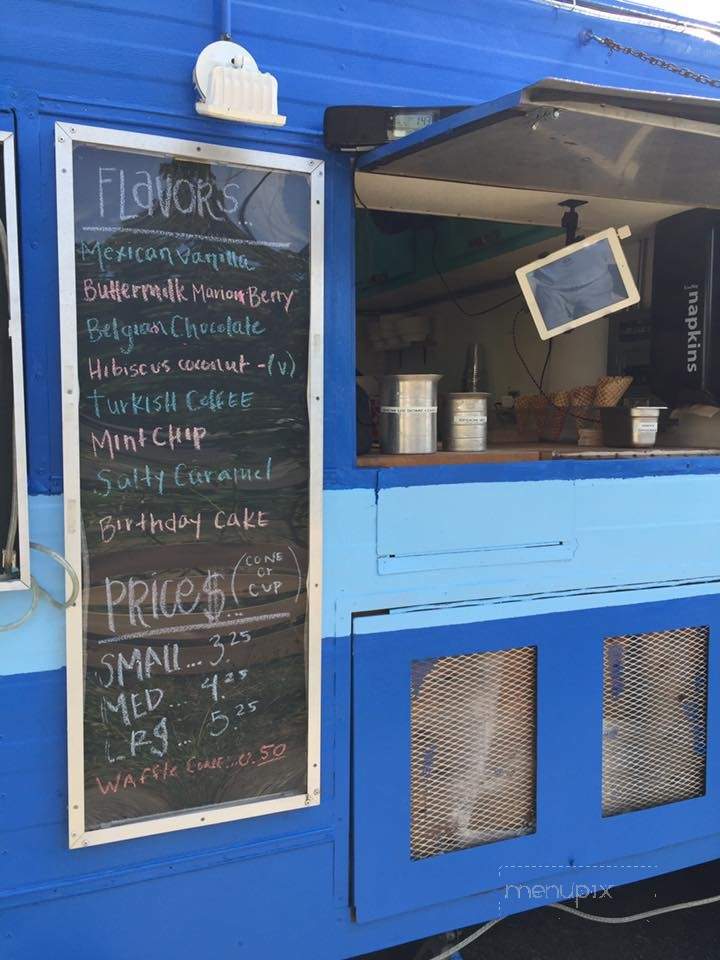 FLavorS...
Mexican Vanilla
Buttermilk MarionBerry
Belgian Chocolate
Hibiscus coconut - (v)
TURKISH COFFEE
Mint CHIP
Salty Caramel
Birthday CAKE
PRICe$... (CONE or CUP)
SMALL... 3.25
MED... 4.25
LRg... 5.25
WAffle Cone...0.50
napkins
menupix